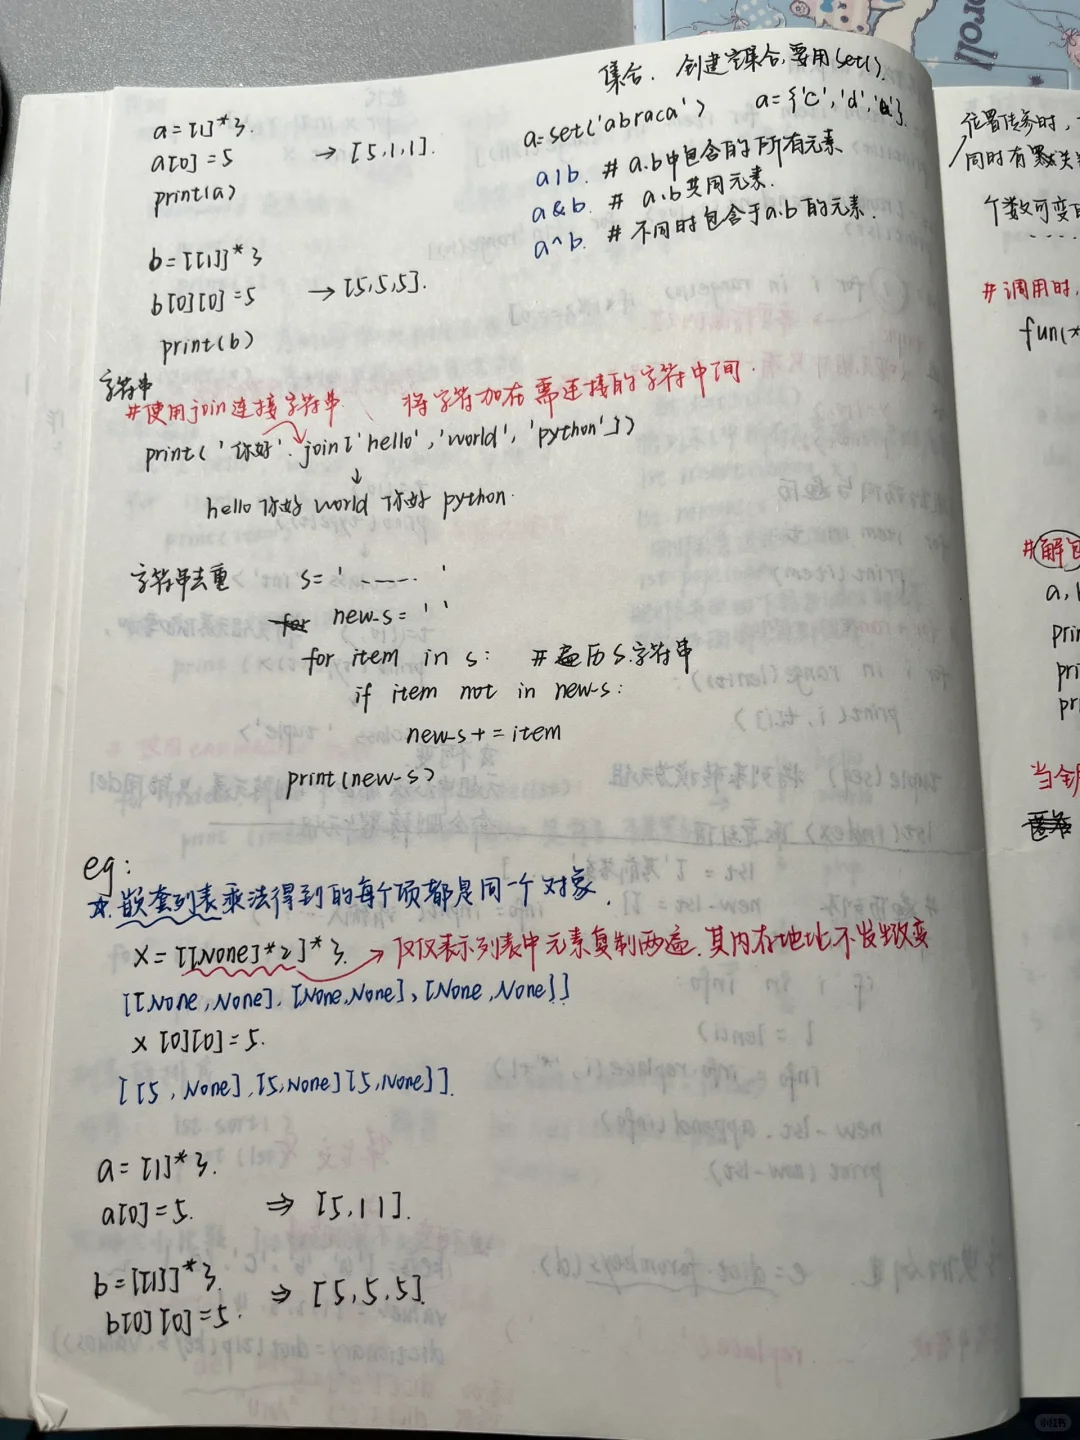 集合. 创建空集合,要用set().
a=set('abraca') a={'c','d','a'}.
a|b. # a.b中包含的所有元素
a&b. # a.b共同元素.
a^b. # 不同时包含于a.b的元素.
a=[1]*3.
a[0]=5 → [5,1,1].
print(a)
b=[[1]]*3
b[0][0]=5 → [5,5,5].
print(b)
字符串
#使用join连接字符串. 将字符加在需连接的字符中间.
print('你好'.join['hello','world','python'])
↓
hello你好world你好python.
字符串去重 s='-----'
new-s=''
for item in s: #遍历s.字符串
if item not in new-s:
new-s+=item
print(new-s)
eg:
☆.嵌套列表乘法得到的每个项都是同一个对象.
x=[[None]*2]*3. → 仅仅表示列表中元素复制两遍.其内存地址不发生改变
[[None,None],[None,None],[None,None]]
x[0][0]=5.
[[5,None],[5,None][5,None]].
a=[1]*3.
a[0]=5. ⇒ [5,11].
b=[[1]]*3.
b[0][0]=5. ⇒ [5,5,5].
位置传参时,
同时有
个数可变的
.....
#调用时,
fun(*
#解包
a,
prin
pri
pr
小红书